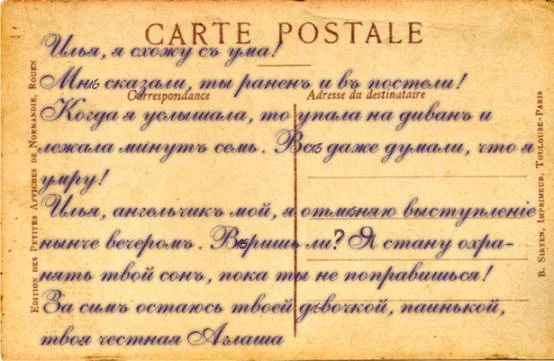 CARTE POSTALE
Илья, я схожу съ ума!
Мнѣ сказали, ты раненъ и въ постели!
Correspondance
Adresse du destinataire
Когда я услышала, то упала на диванъ и
лежала минутъ семь. Всѣ даже думали, что я
умру!
Илья, ангельчикъ мой, я отмѣняю выступленіе
нынче вечеромъ. Вѣришь ли? Я стану охра-
нять твой сонъ, пока ты не поправишься!
За симъ остаюсь твоей дѣвочкой, паинькой,
твоя честная Аглаша
Edition des Petites Affiches de Normandie, Rouen
B. Sirven, Imprimeur, Toulouse-Paris